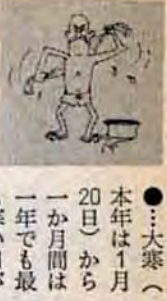 ●…大寒（
本年は1月
20日）から
一か月間は
一年でも最